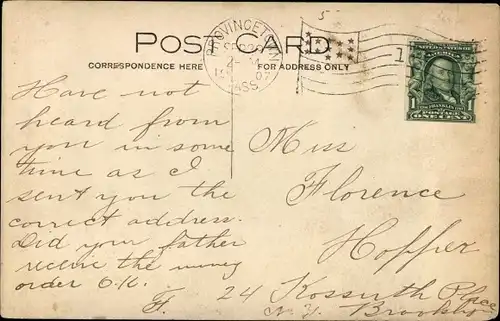 POST CARD
CORRESPONDENCE HERE
FOR ADDRESS ONLY
PROVINCETOWN
MASS.
5
1
UNITED STATES OF AMERICA
FRANKLIN
1 POSTAGE 1
ONE CENT
Have not
heard from
you in some
time as I
sent you the
correct address.
Did your father
receive the money
order O.K.
F.
Miss
Florence
Hopper
24 Kossuth Place
N.Y. Brooklyn